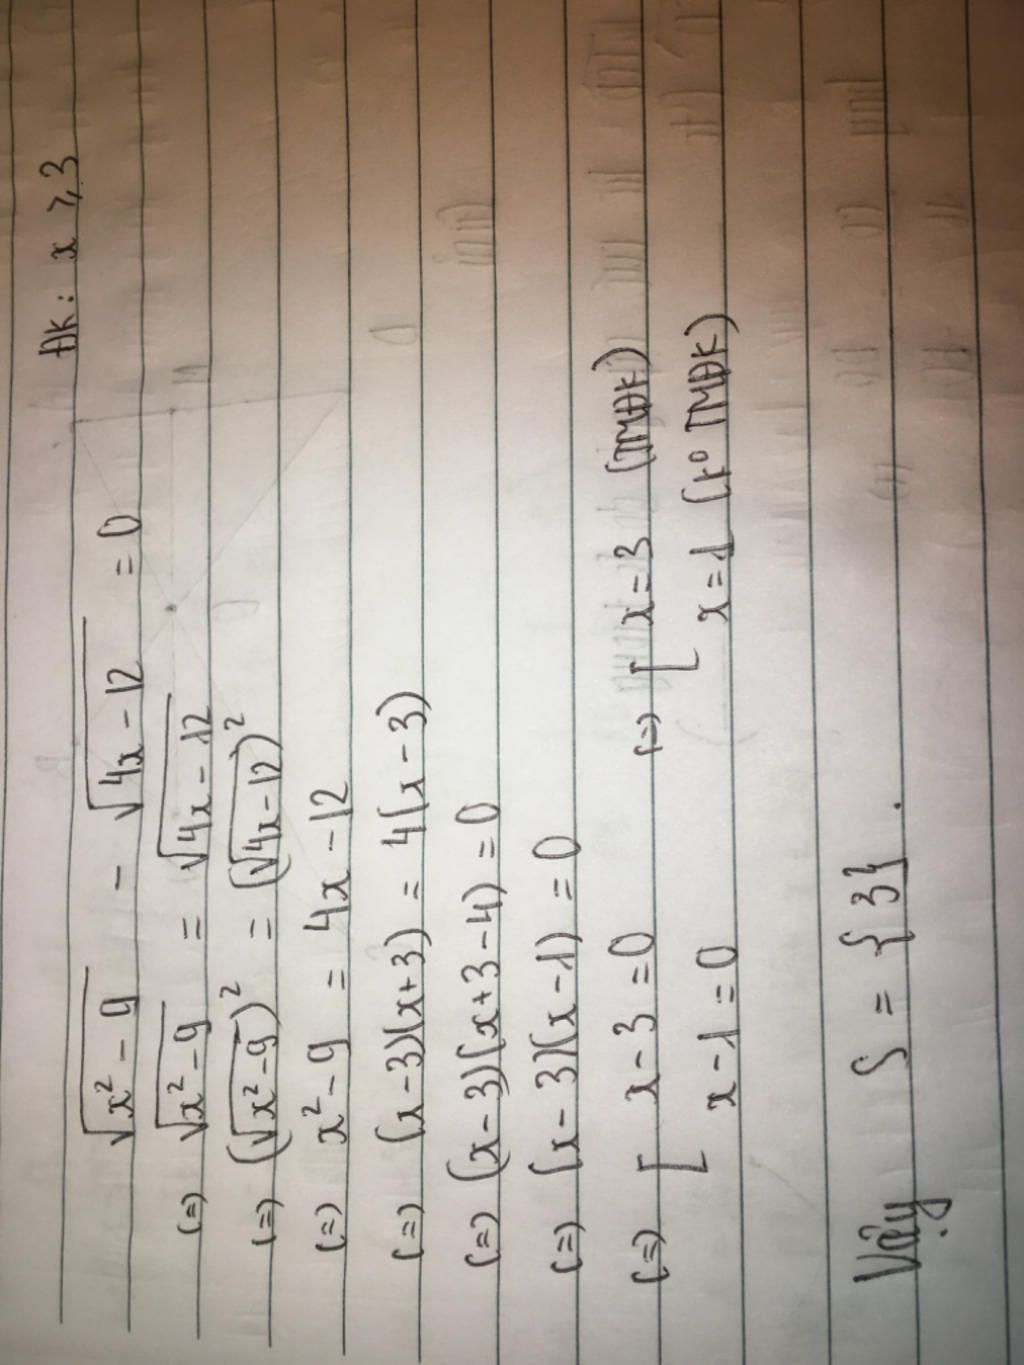 √(x² - 9) - √(4x - 12) = 0 ĐK: x ⩾ 3
(=) √(x² - 9) = √(4x - 12)
(=) (√(x² - 9))² = (√(4x - 12))²
(=) x² - 9 = 4x - 12
(=) (x - 3)(x + 3) = 4(x - 3)
(=) (x - 3)(x + 3 - 4) = 0
(=) (x - 3)(x - 1) = 0
(=) [ x - 3 = 0 (=) [ x = 3 (TMĐK)
x - 1 = 0 x = 1 (k° TMĐK)
Vậy S = {3}.